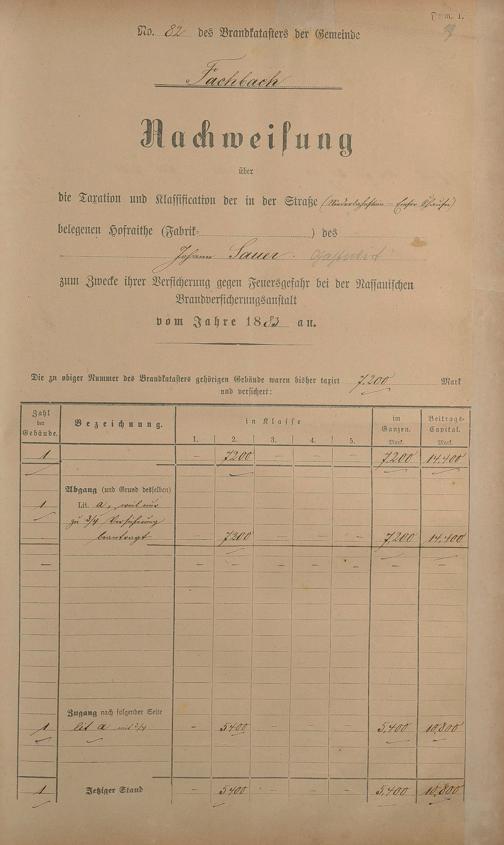 Form. 1.
No. 82 des Brandkatasters der Gemeinde
Fachbach
Nachweisung
über
die Taxation und Klassification der in der Straße (Niederlahnstein - Emser Chaussee)
belegenen Hofraithe (Fabrik- ) des
Johann Sauer.
zum Zwecke ihrer Versicherung gegen Feuersgefahr bei der Nassauischen
Brandversicherungsanstalt
vom Jahre 1883 an.
Die zu obiger Nummer des Brandkatasters gehörigen Gebäude waren bisher taxirt 7,200 Mark
und versichert:
Zahl der Gebäude. Bezeichnung. in Klasse im Ganzen. Beitrags-Capital.
1. 2. 3. 4. 5. Mark. Mark.
1 – 7200 – – – 7,200 14,400
Abgang (und Grund desselben)
1 Lit. a, weil nur
zu 3/4 Versicherung
beantragt – 7200 – – – 7,200 14,400
– – – – – – – –
Zugang nach folgender Seite
1 lit a mit 3/4 – 5400 – – – 5,400 10,800
1 Jetziger Stand – 5400 – – – 5,400 10,800